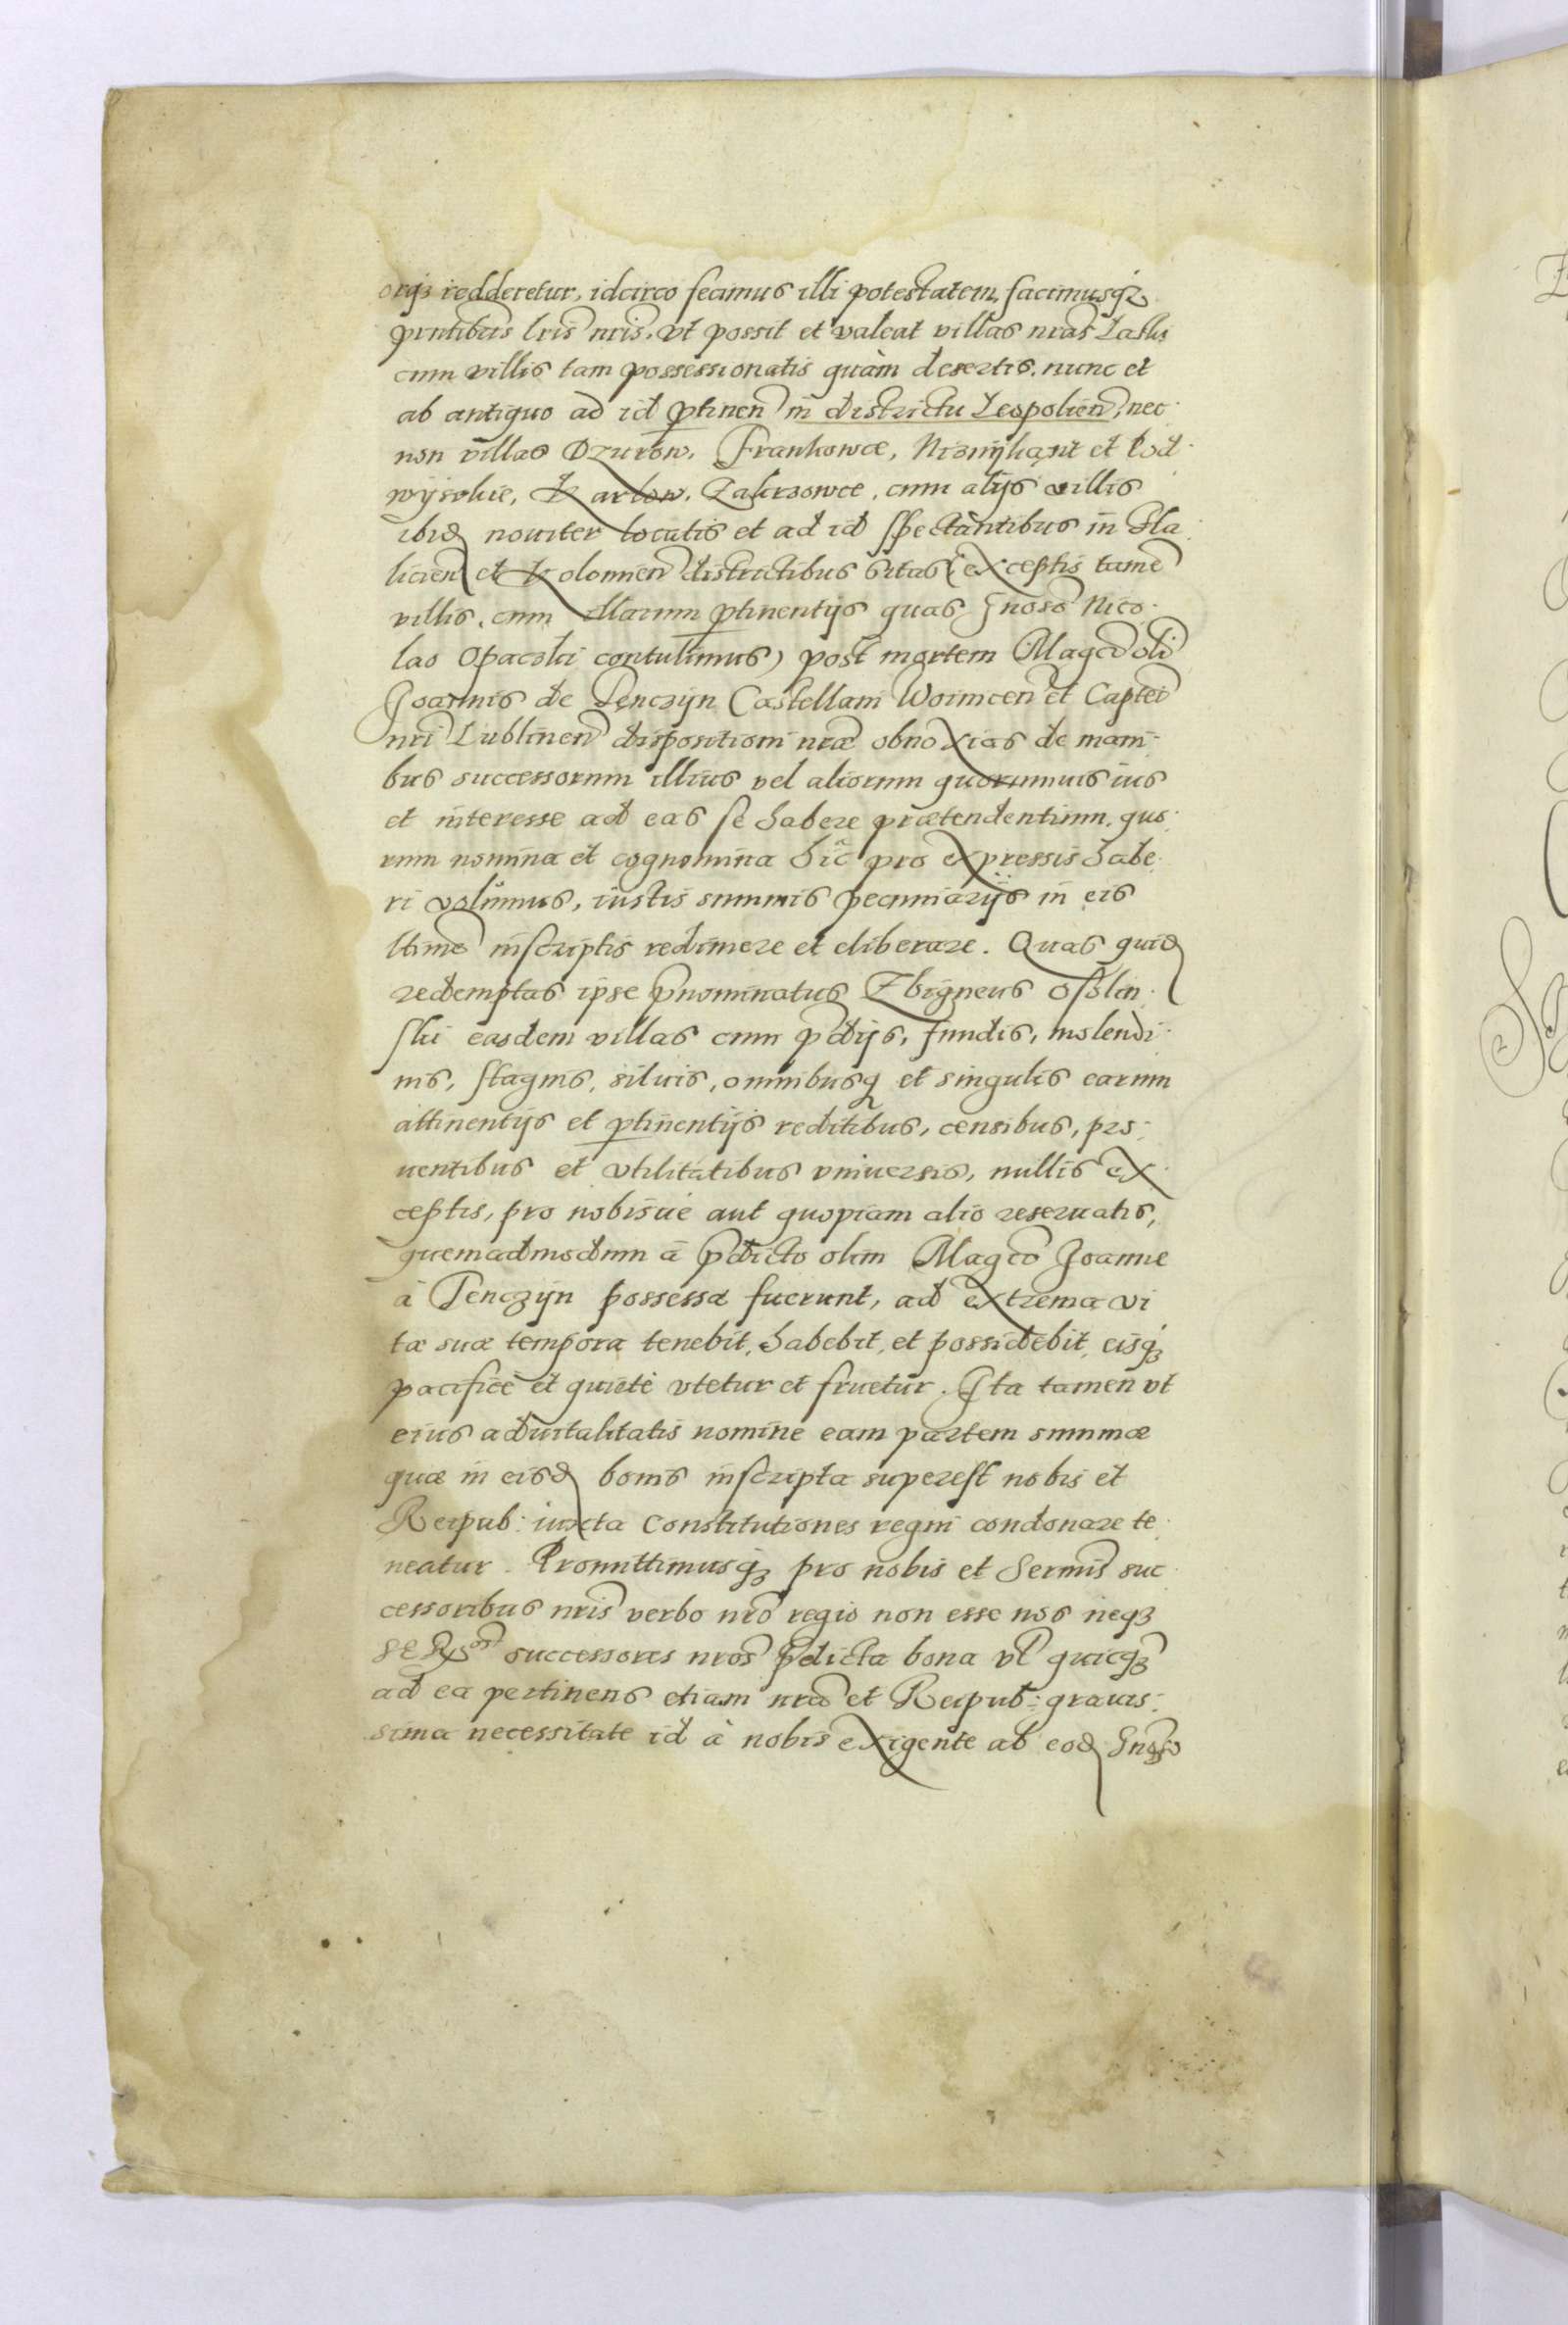 orq3 redderetur, idcirco fecimus illi potestatem, facimusq3
pntibus lris nris, vt possit et valeat villas nras Laski
cum villis tam possessionatis quàm desertis, nunc et
ab antiquo ad id ptinen in districtu Leopolien, nec
non villas Dzurow, Frankowce, Nizny kąnt et Pod
wysokie, Karlow, Zakrzowce, cum alijs villis
ibid nouiter locatis et ad id spectantibus in Ha
licien et Kolomien districtibus sitas (exceptis tame
villis, cum illarum ptinentijs quas Gnoso Nico
lao Opaczki contulimus) post mortem Magci oli
Joannis de Tenczyn Castellani Woinicen et Captei
nri Lublinen dispositioni nræ obnoxias de mani
bus successorum illius vel aliorum quorumuis ius
et interesse ad eas se habere prætendentium, quo
rum nomina et cognomina hic pro expressis habe
ri volumus, iustis summis pecuniarijs in eis
ltime inscriptis redimere et eliberare. Quas quid
redemptas ipse pnominatus Zbigneus Ossolin
ski easdem villas cum pdijs, fundis, molendi
nis, stagnis, siluis, omnibusq et singulis earum
attinentijs et ptinentijs reditibus, censibus, pro
uentibus et vtilitatibus vniuersis, nullis ex
ceptis, pro nobisuè aut quopiam alio reseruatis,
quemadmodum à pdicto olim Magco Joanne
à Tenczyn possessa fuerunt, ad extrema vi
tæ suæ tempora tenebit, habebit, et possidebit, eisq3
pacificè et quietè vtetur et fruetur. Ita tamen vt
eius aduitalitatis nomine eam partem summæ
quæ in eisd bonis inscripta superest nobis et
Reipub: iuxta Constitutiones regni condonare te
neatur. Promittimusq3 pro nobis et Sermis suc
cessoribus nris verbo nro regio non esse nos neq3
successores nros pdicta bona vl quicq3
ad ea pertinens etiam nra et Reipub: grauis
sima necessitate id à nobis exigente ab eod Gnoso